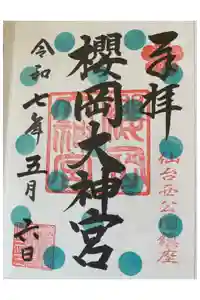 奉拝
仙台西公園鎮座
櫻岡大神宮
令和七年五月六日